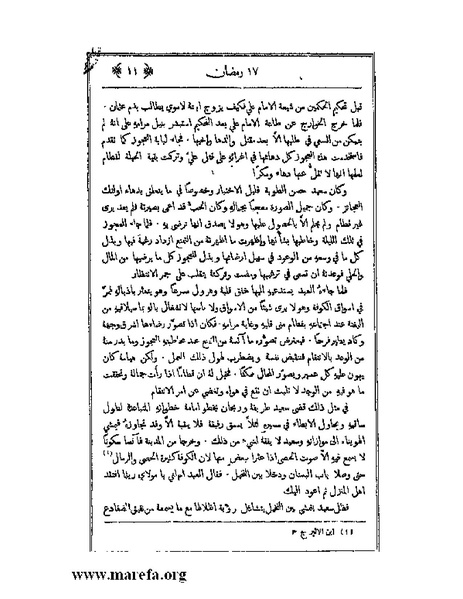 ١٧ رمضان ﴿ ١١ ﴾
قبل تحكيم الحكمين من شيعة الامام علي فكيف يزوج ابنته لاموي يطالب بدم عثمان ٠
فلما خرج الخوارج عن طاعة الامام علي بعد التحكيم استبشر بنيل مرامه على انه لم
يتمكن من السعي في طلبها الاَّ بعد مقتل والدها واخيها ٠ فجاء لبابة العجوز كما تقدم
فاستخدمت هذه العجوز كل دهائها في اغرائه على قتل علي وتركت بقية الحيلة لقطام
لعلمها انها لا تقلُّ عنها دهاء ومكرًا
وكان سعيد حسن الطوية قليل الاختبار وخصوصًا في ما يتعلق بدهاء اولئك
العجائز ٠ وكان جميل الصورة معجبًا بجماله وكان الحب قد اعمى بصيرته فلم يعد يرى
غير قطام ولم يهمه الاَّ الحصول عليها وهو لا يصدق انها ترضى به ٠ فلما جاءته العجوز
في تلك الليلة وخاطبها بشأنها واظهرت ما اظهرته من التمنع ازداد رغبة فيها وبذل
كل ما في وسعه من الوعود في سبيل ارضائها وبذل للعجوز كل ما يرضيها من المال
والحلي فوعدته ان تسعى في ترغيبها ومضت وتركته يتقلب على جمر الانتظار
فلما جاءهُ العبد يستدعيه اليها خفق قلبه وهرول مسرعًا وهو يتعثر باذياله فمرَّ
في اسواق الكوفة وهو لا يرى شيئًا من الاسواق ولا ناسها لانشغال باله بما سيلاقيه من
البغتة عند اجتماعه بقطام منى قلبه وغاية مرامه ٠ فكان اذا تصوَّر رضاءها اشرق وجهه
وكاد يطير فرحًا ٠ فيعترض تصوره ما آنسه من التمنع عند مخاطبته العجوز وما يدر منه
من الوعد بالانتقام فتنقبض نفسه ويضطرب لهول ذلك العمل ٠ ولكن هيامه كان
يهون عليه كل عسير ويصور المحال ممكنًا ٠ فخيل له ان قطامًا اذا رأت جماله وتحققت
ما هو فيه من الوجد لا تلبث ان تقع في هواه وتغضي عن امر الانتقام
في مثل ذلك قضى سعيد طريقه وريحان يخطو امامه خطواته المتباعدة لطول
ساقيه ويحاول الابطاء في مسيره لئلا يسبق رفيقه فلا ينتبه الاَّ وقد تجاوزه فيمشي
الهوينا الى موازاته وسعيد لا يفقه لشيء من ذلك ٠ وخرجا من المدينة فآنسا سكونًا
لا يسمع فيه الاَّ صوت الحصى اذا عثرا ببعض منها لان الكوفة كثيرة الحصى والرمال(١)
حتى وصلا باب البستان ودخلا بين النخيل ٠ فقال العبد امهلني يا مولاي ريثما افتقد
اهل المنزل ثم اعود اليك
فظل سعيد يمشي بين النخيل يتشاغل برؤية اظلالها مع ما يسمعه من نقيق الضفادع
(١) ابن الاثير ج ٣
www.marefa.org